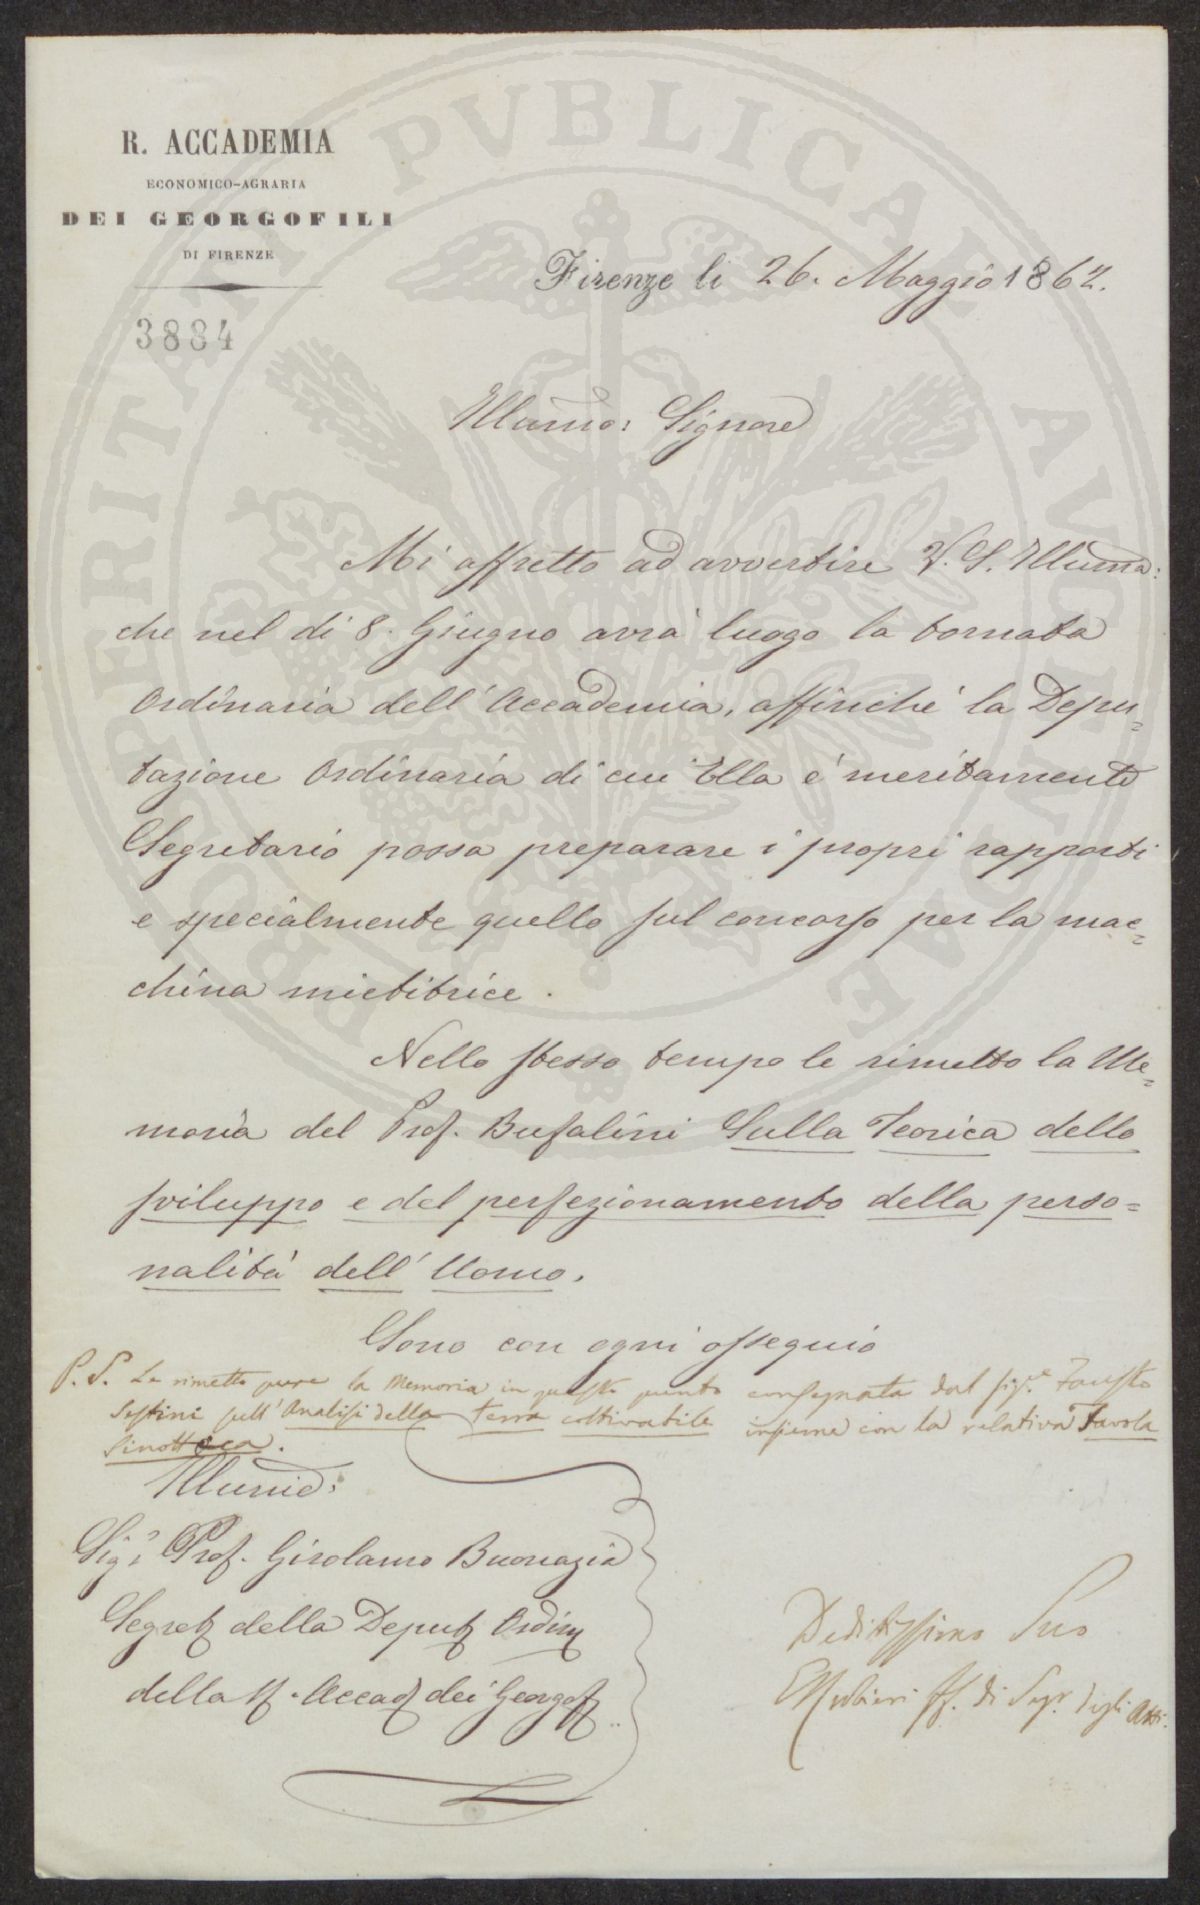 R. ACCADEMIA
ECONOMICO-AGRARIA
DEI GEORGOFILI
DI FIRENZE
3884
Firenze li 26. Maggio 1862.
Illumo: Signore
Mi affretto ad avvertire V. S. Illuma:
che nel dì 8. Giugno avrà luogo la tornata
Ordinaria dell'Accademia, affinchè la Depu=
tazione Ordinaria di cui Ella è meritamente
Segretario possa preparare i propri rapporti
e specialmente quello sul concorso per la mac=
china mietitrice.
Nello stesso tempo le rimetto la Me=
moria del Prof. Bufalini Sulla Teorica dello
sviluppo e del perfezionamento della perso=
nalità dell'Uomo.
Sono con ogni ossequio
P. S. Le rimetto pure la Memoria in questo punto consegnata dal sigre. Fausto
Sestini sull'Analisi della terra coltivabile insieme con la relativa Tavola
Sinottica.
Sigr Prof. Girolamo Buonazia
Segret della Deput Ordin
della R. Accad dei Georgof
Dedittissimo Suo
ff. di Segr. degli Atti.
PROSPERITATI PVBLICAE AVGENDAE